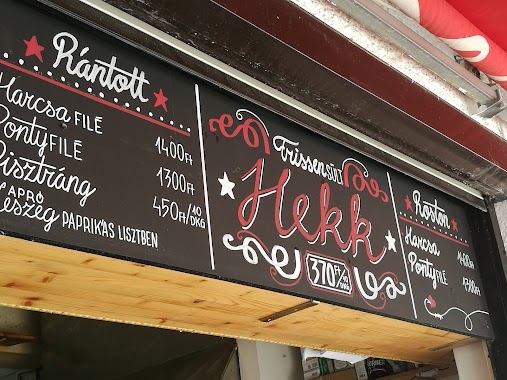 Rántott
Harcsa FILÉ 1400 Ft
Ponty FILÉ 1300 Ft
Pisztráng 450 Ft/10 DKG
APRÓ
Keszeg PAPRIKÁS LISZTBEN
Frissen SÜLT
Hekk
370 Ft/10 DKG
Roston
Harcsa 1400 Ft
Ponty FILÉ 1300 Ft